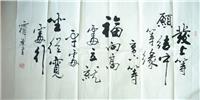 發上等
願結中
等緣
享下等
福向高
處立就
平處
坐從寬
處行